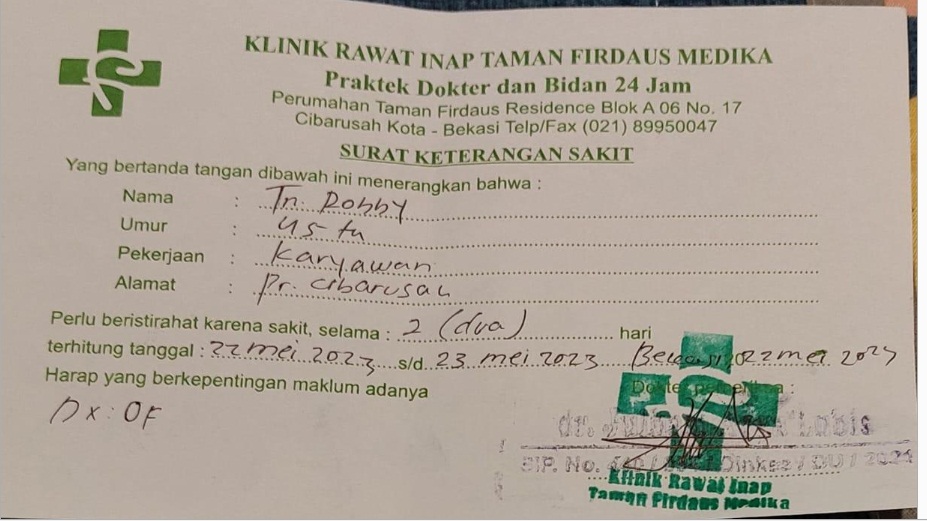 KLINIK RAWAT INAP TAMAN FIRDAUS MEDIKA
Praktek Dokter dan Bidan 24 Jam
Perumahan Taman Firdaus Residence Blok A 06 No. 17
Cibarusah Kota - Bekasi Telp/Fax (021) 89950047
SURAT KETERANGAN SAKIT
Yang bertanda tangan dibawah ini menerangkan bahwa :
Nama : Tn. Robby
Umur : 45 th
Pekerjaan : Karyawan
Alamat : Pr. Cibarusah
Perlu beristirahat karena sakit, selama : 2 (dua) hari
terhitung tanggal : 22 mei 2023 s/d. 23 mei 2023 Bekasi, 22 mei 2023
Harap yang berkepentingan maklum adanya
Dokter pemeriksa :
Dx : OF
dr. Lubis
SIP. No. Dinkes / DU / 2021
Klinik Rawat Inap
Taman Firdaus Medika